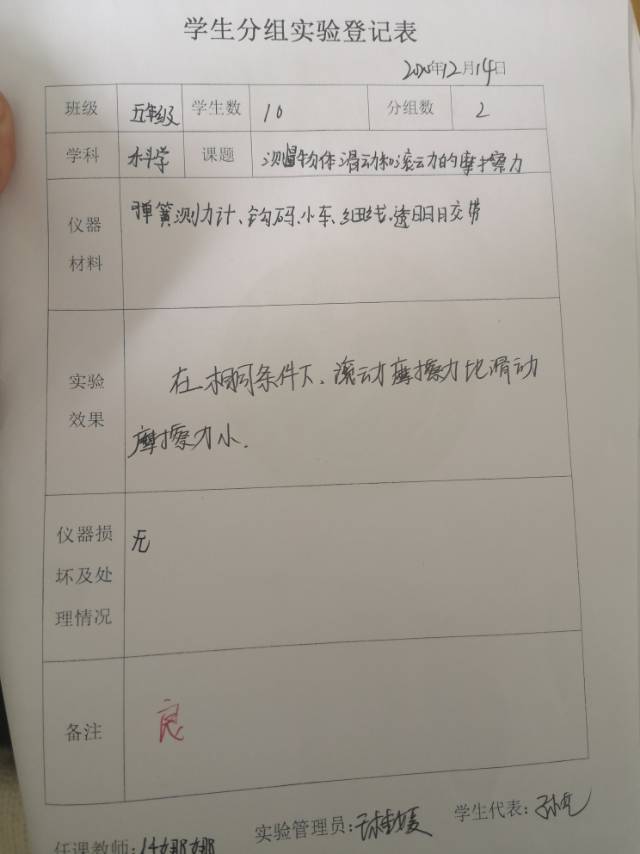 学生分组实验登记表
2020年12月14日
班级 五年级 学生数 10 分组数 2
学科 科学 课题 测量物体滑动和滚动的摩擦力
仪器
材料
弹簧测力计、钩码、小车、细线、透明胶带
实验
效果
在相同条件下、滚动摩擦力比滑动
摩擦力小.
仪器损
坏及处
理情况
无
备注
良
任课教师: 娜娜 实验管理员: 学生代表: